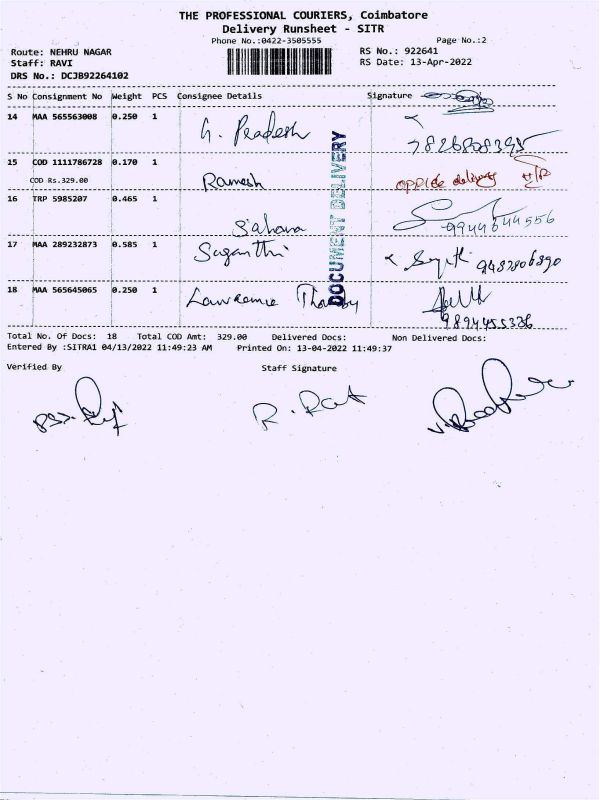 THE PROFESSIONAL COURIERS, Coimbatore
Delivery Runsheet - SITR
Phone No.:0422-3505555 Page No.:2
Route: NEHRU NAGAR RS No.: 922641
Staff: RAVI RS Date: 13-Apr-2022
DRS No.: DCJB92264102
S No Consignment No Weight PCS Consignee Details Signature
14 MAA 565563008 0.250 1 G. Pradesh
7826808395
15 COD 1111786728 0.170 1 Ramesh office delivery
COD Rs.329.00
16 TRP 5985207 0.465 1 Sahana 9944644556
17 MAA 289232873 0.585 1 Suganthi 9487806890
18 MAA 565645065 0.250 1 Lawrence
9894455336
DOCUMENT DELIVERY
Total No. Of Docs: 18 Total COD Amt: 329.00 Delivered Docs: Non Delivered Docs:
Entered By :SITRA1 04/13/2022 11:49:23 AM Printed On: 13-04-2022 11:49:37
Verified By Staff Signature